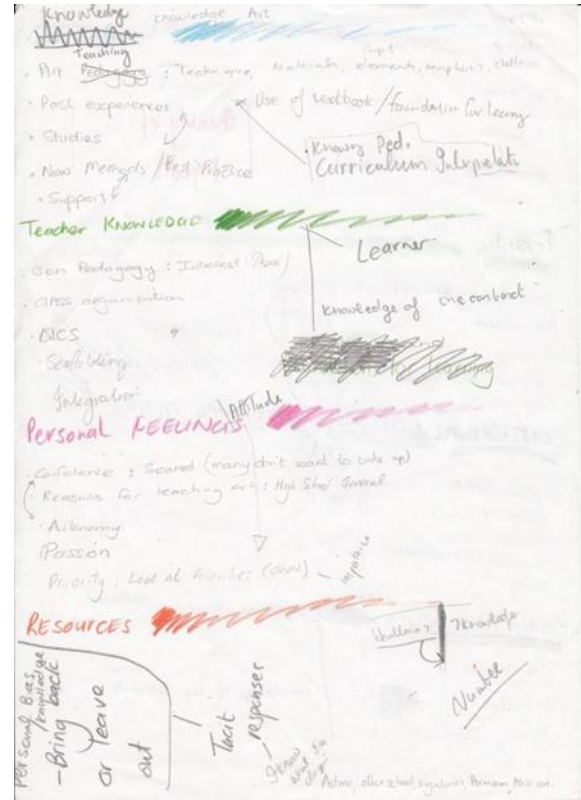 Knowledge
knowledge Art
Teaching
Art Pedagogy : Technique, Materials, elements, skills
Past experiences
Use of textbook / foundation for learning
Studies
Knowg Ped.
Curriculum
New Methods / Past Practice
Support
Teacher KNOWLEDGE
Learner
Gen Pedagogy : Interest
Class organization
Knowledge of the context
NCS
Scaffolding
Integration
Attitude
Personal FEELINGS
Confidence : Scared (many don't want to take up)
Reasons for teaching art : High School General
Autonomy
Passion
Priority : Look at Priorities (own)
importance
RESOURCES
Shulman 7 knowledge
Number
Personal Bias
knowledge
- Bring back
or leave
out
Tacit
responses
I know
what I'm